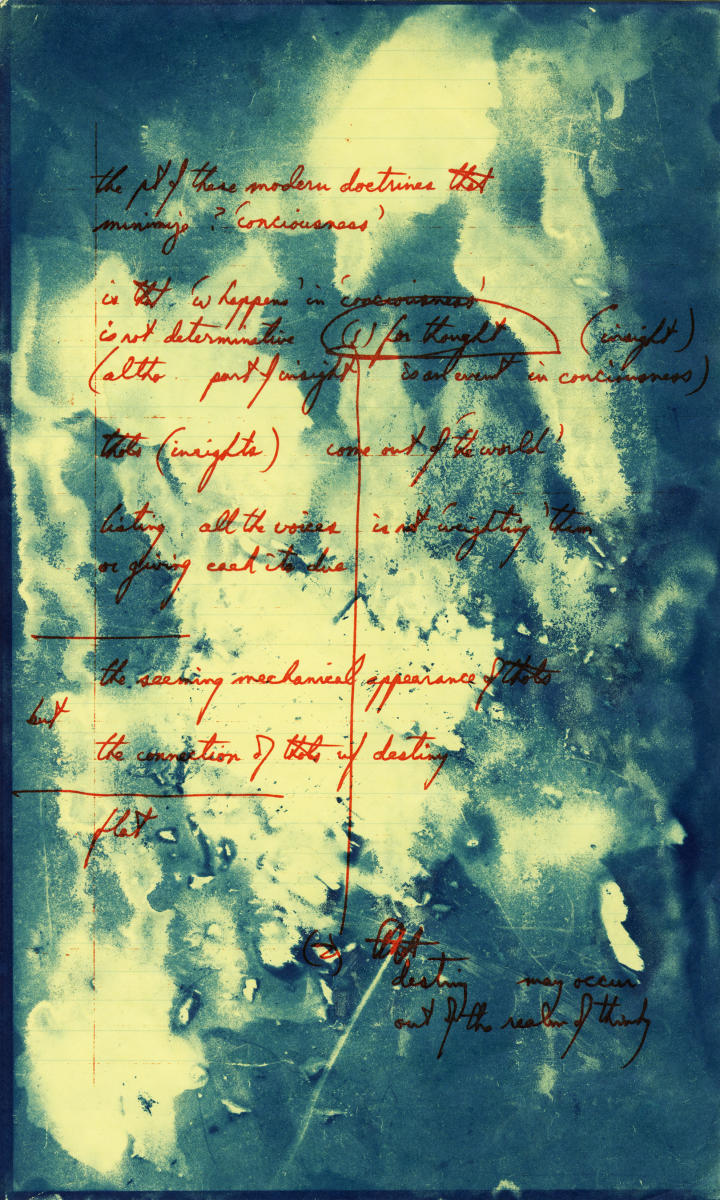 the pt of these modern doctrines that
minimize ? 'conciousness'
is that 'w happens' in 'conciousness'
is not determinative (1) for thought (insight)
(altho part of insight is an event in conciousness)
thots (insights) come out of 'the world'
listing all the voices is not 'weighting' them
or giving each its due
the seeming mechanical appearance of thots
but
the connection of thots w/ destiny
flat
(2) that
destiny may occur
out of the realm of